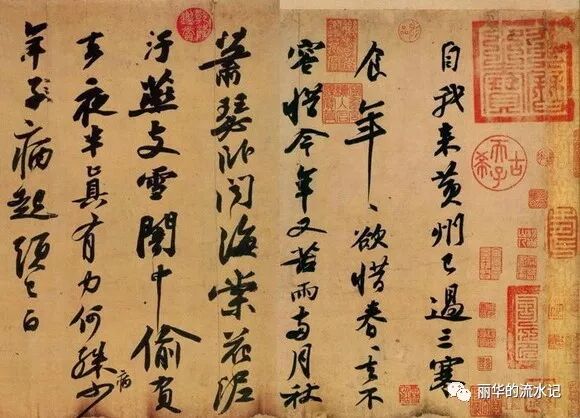 自我来黄州已過三寒
食年、欲惜春、去不
容惜今年又苦雨兩月秋
蕭瑟卧聞海棠花泥
汙燕支雪闇中偷負
去夜半真有力何殊少
病
年子病起頭已白
古希天子
丽华的流水记